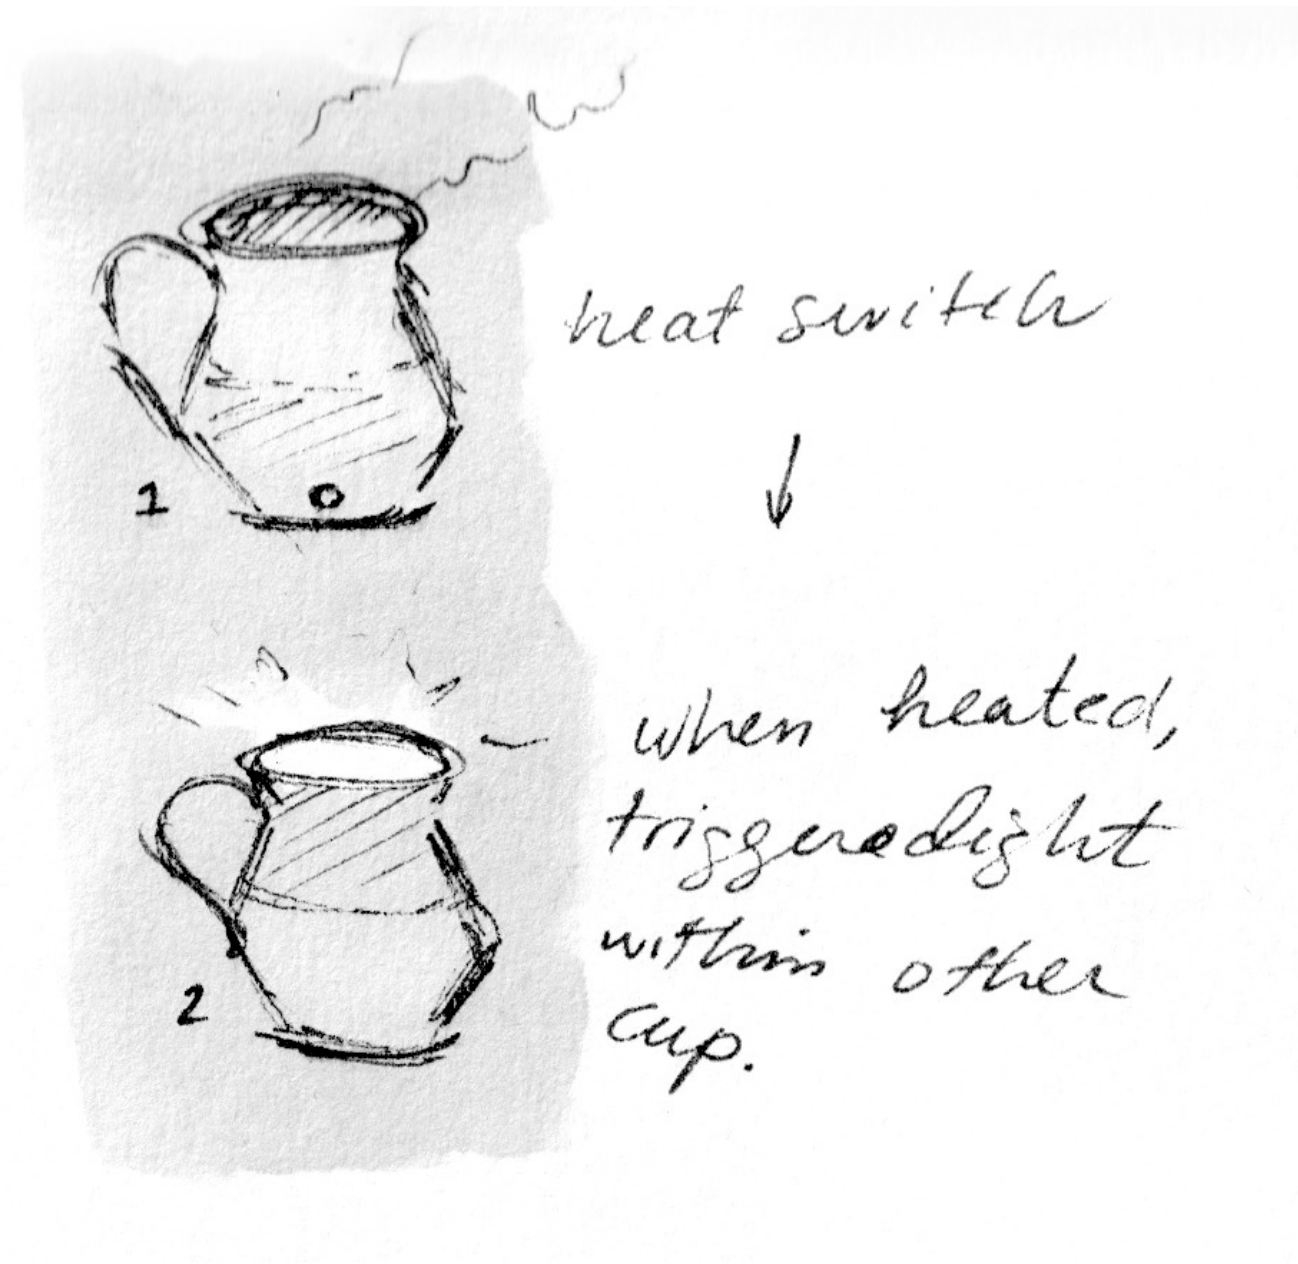 heat switch
1
when heated,
triggers light
within other
cup.
2